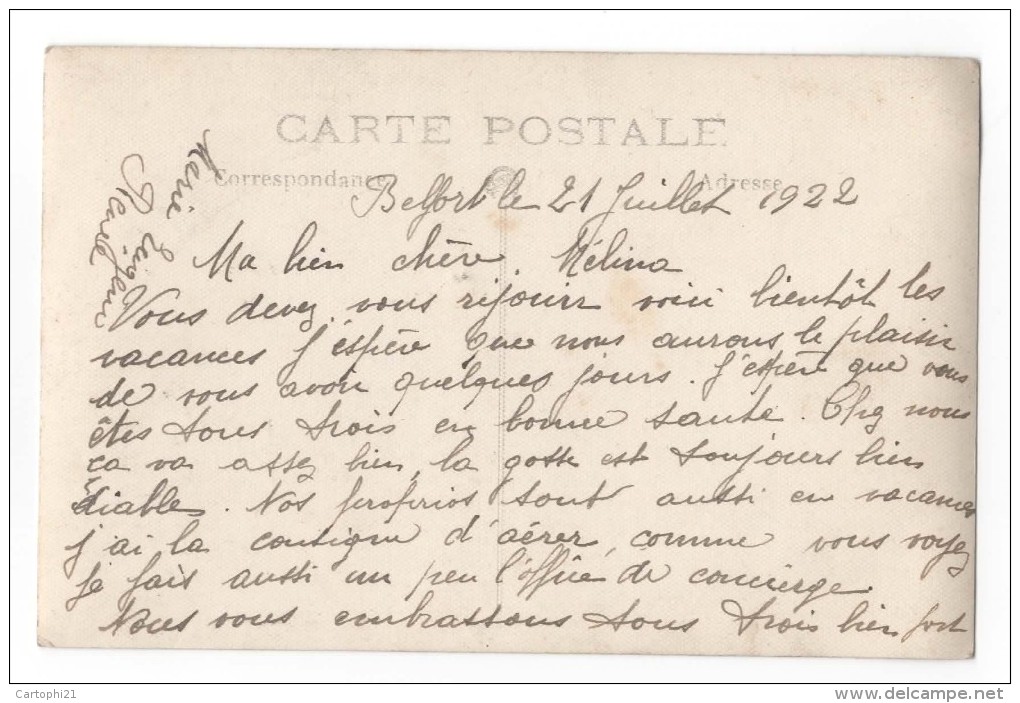 CARTE POSTALE
Correspondance
Adresse
Belfort le 21 Juillet 1922
Ma bien chère Mélina
Vous devez vous réjouir voici bientôt les
vacances J'espère que nous aurons le plaisir
de vous avoir quelques jours. J'espère que vous
êtes tous trois en bonne santé. Chez nous
ça va assez bien, la gosse est toujours bien
diable. Nos proprios sont aussi en vacances
j'ai la consigne d'aérer, comme vous voyez
je fais aussi un peu l'office de concierge.
Nous vous embrassons tous trois bien fort
Marie
Cartophi21
www.delcampe.net